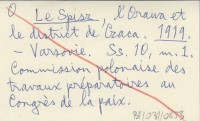 Le Spisz, l'Orawa et
le district de Czaca. 1919.
- Varsovie. Ss. 10, m. 1.
Commission polonaise des
travaux préparatoires au
Congrès de la paix.